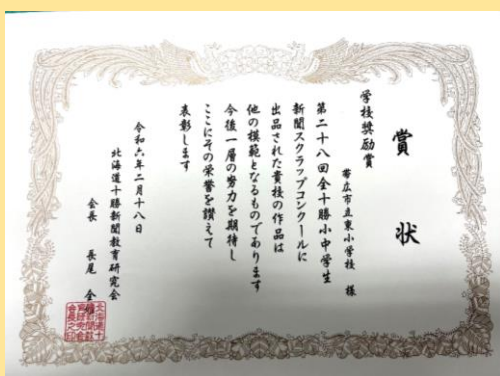 賞状
学校奨励賞
帯広市立東小学校 様
第二十八回全十勝小中学生
新聞スクラップコンクールに
出品された貴校の作品は
他の模範となるものであります
今後一層の努力を期待し
ここにその栄誉を讃えて
表彰します
令和六年二月十八日
北海道十勝新聞教育研究会
会長 長尾 全